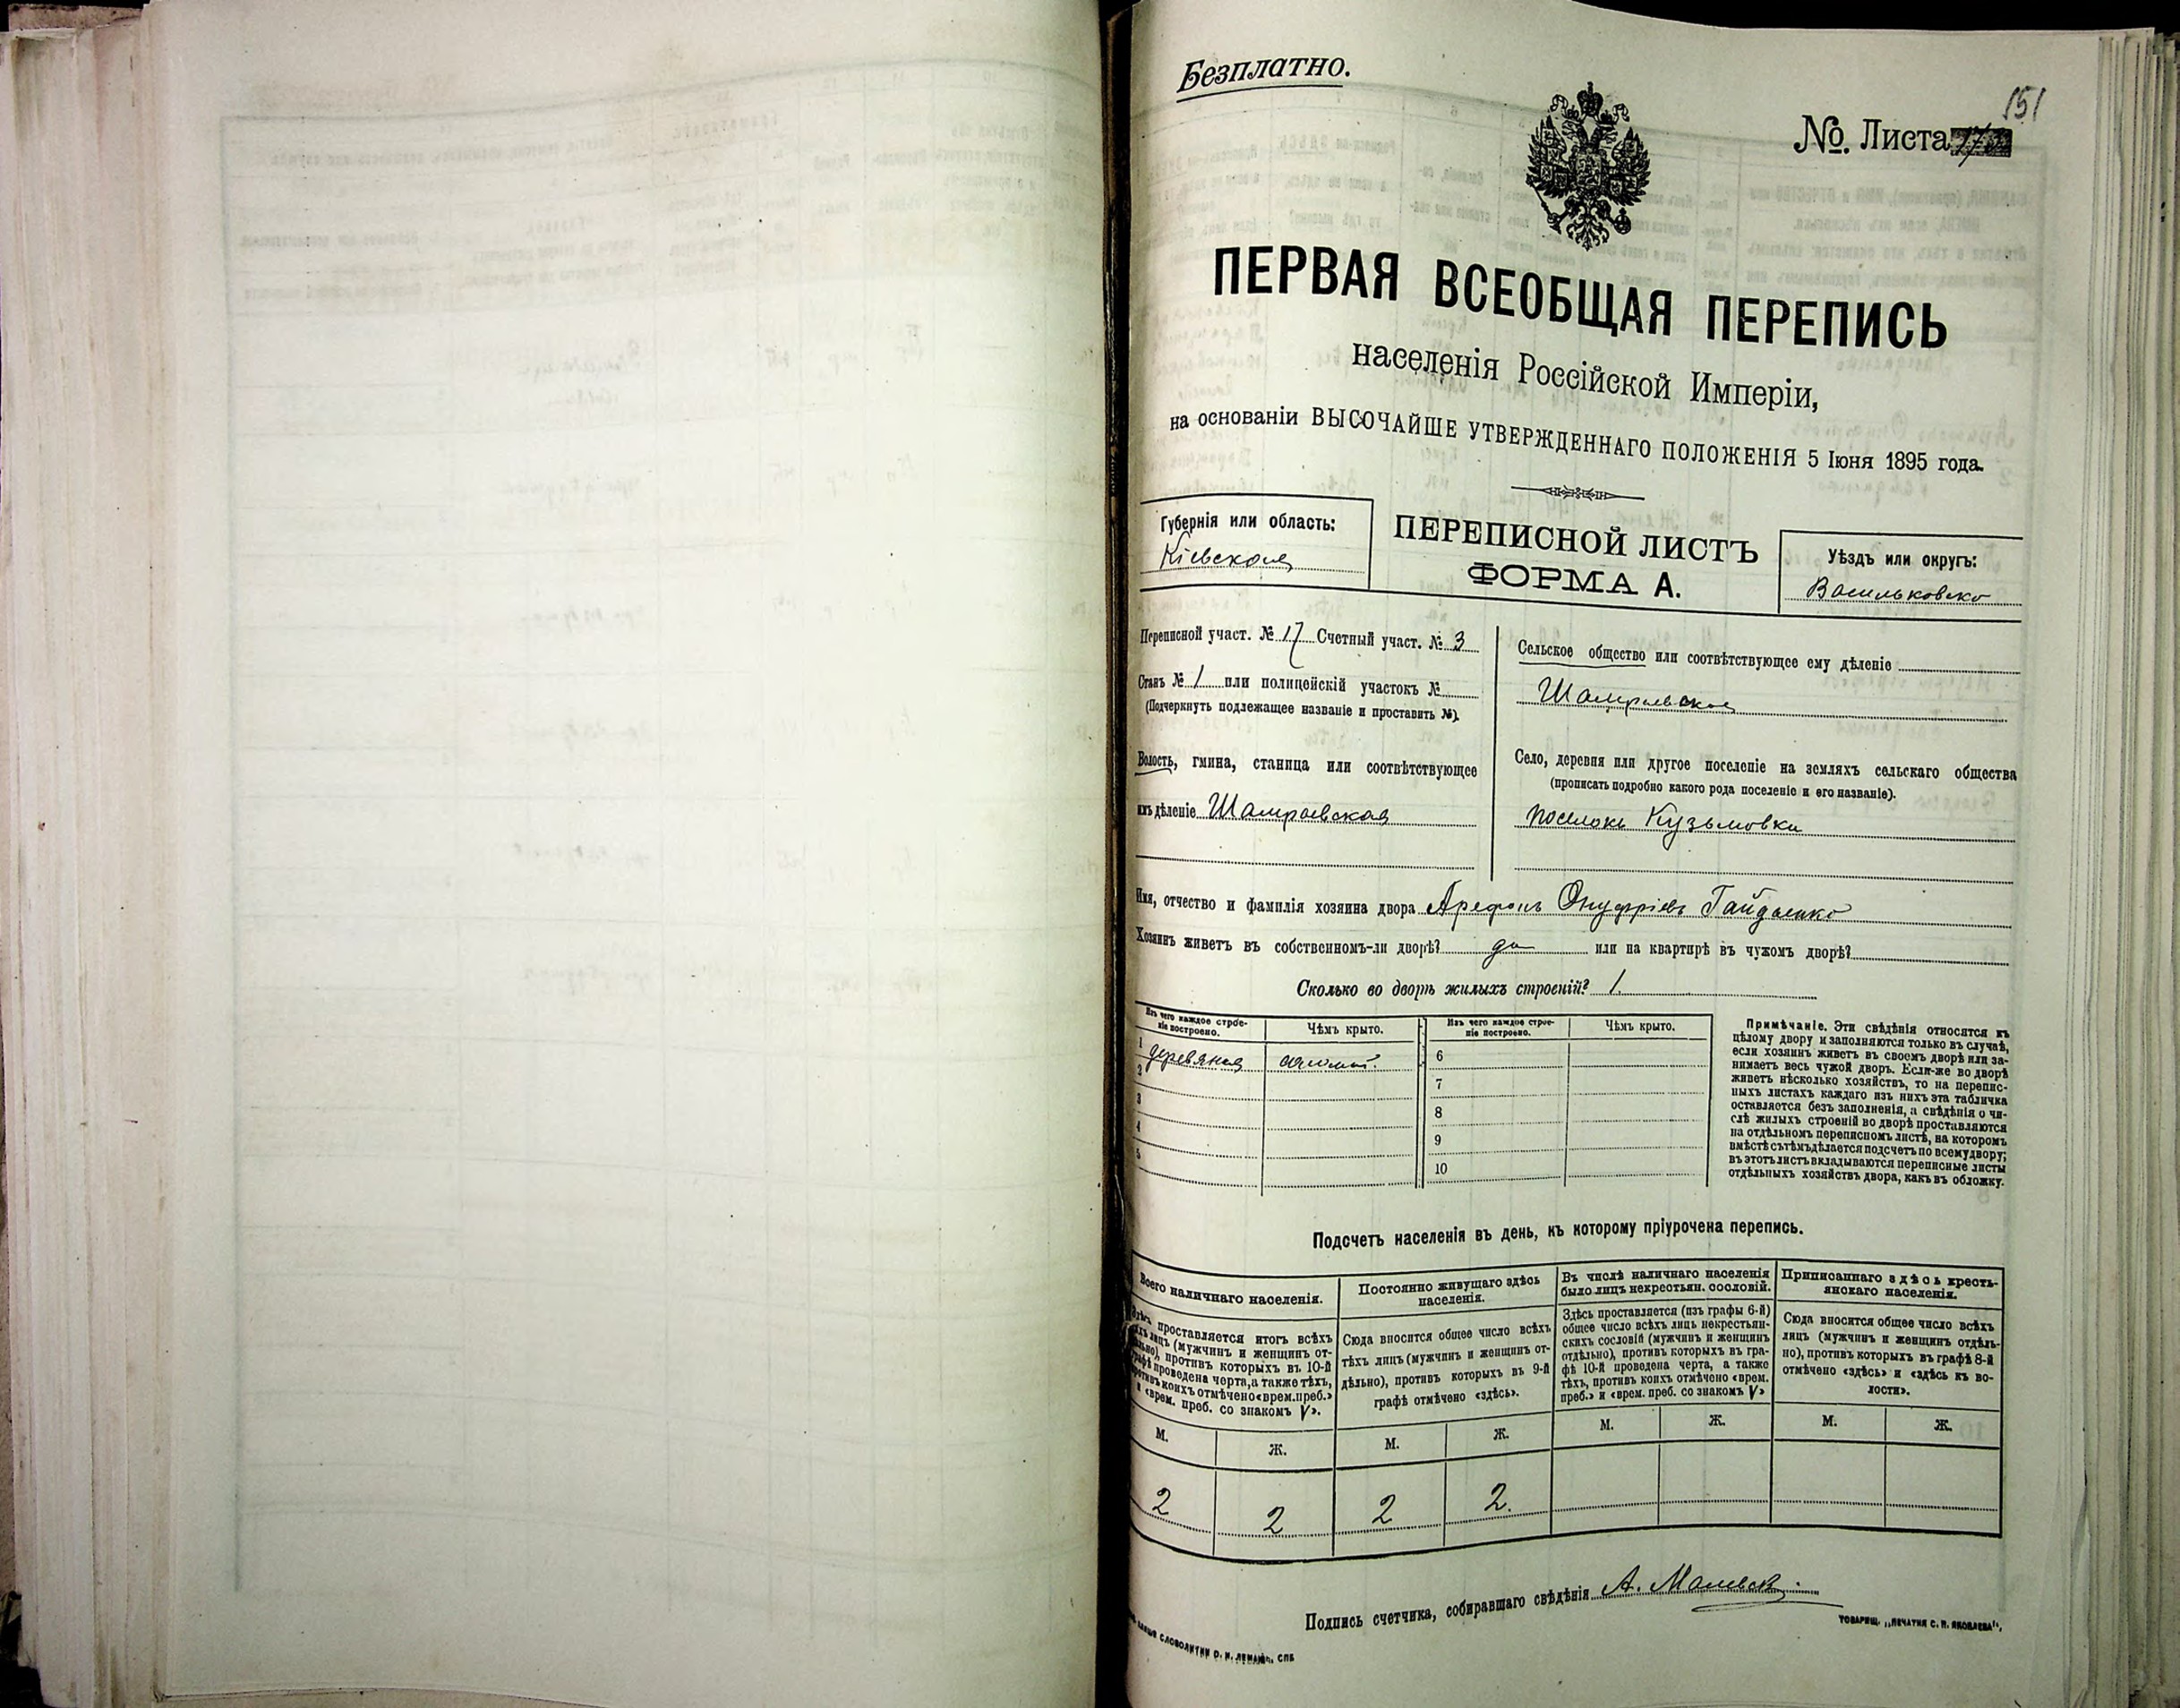 Безплатно.
151
№. Листа
ПЕРВАЯ ВСЕОБЩАЯ ПЕРЕПИСЬ
населенія Россійской Имперіи,
на основаніи ВЫСОЧАЙШЕ УТВЕРЖДЕННАГО ПОЛОЖЕНІЯ 5 Іюня 1895 года.
Губернія или область:
Кіевская
ПЕРЕПИСНОЙ ЛИСТЪ
ФОРМА А.
Уѣздъ или округъ:
Васильковско
Переписной участ. № 17 Счетный участ. № 3
Станъ № 1 или полицейскій участокъ №
(Подчеркнуть подлежащее названіе и проставить №).
Волость, гмина, станица или соотвѣтствующее
имъ дѣленіе Шамраевская
Сельское общество или соотвѣтствующее ему дѣленіе
Шамраевское
Село, деревня или другое поселеніе на земляхъ сельскаго общества
(прописать подробно какого рода поселеніе и его названіе).
поселокъ Кузьмовка
Имя, отчество и фамилія хозяина двора Арефонъ Онуфріевъ Гайдаенко
Хозяинъ живетъ въ собственномъ-ли дворѣ? да или на квартирѣ въ чужомъ дворѣ?
Сколько во дворѣ жилыхъ строеній? 1.
Изъ чего каждое строе-
ніе построено.
Чѣмъ крыто.
Изъ чего каждое строе-
ніе построено.
Чѣмъ крыто.
1 деревяная
6
2
7
3
8
4
9
5
10
Примѣчаніе. Эти свѣдѣнія относятся къ
цѣлому двору и заполняются только въ случаѣ,
если хозяинъ живетъ въ своемъ дворѣ или за-
нимаетъ весь чужой дворъ. Если-же во дворѣ
живетъ нѣсколько хозяйствъ, то на перепис-
ныхъ листахъ каждаго изъ нихъ эта табличка
оставляется безъ заполненія, а свѣдѣнія о чи-
слѣ жилыхъ строеній во дворѣ проставляются
на отдѣльномъ переписномъ листѣ, на которомъ
вмѣстѣ съ тѣмъ дѣлается подсчетъ по всему двору;
въ этотъ листъ вкладываются переписные листы
отдѣльныхъ хозяйствъ двора, какъ въ обложку.
Подсчетъ населенія въ день, къ которому пріурочена перепись.
Всего наличнаго населенія.
Здѣсь проставляется итогъ всѣхъ
тѣхъ лицъ (мужчинъ и женщинъ от-
дѣльно), противъ которыхъ въ 10-й
графѣ проведена черта, а также тѣхъ,
противъ коихъ отмѣчено «врем. преб.»
и «врем. преб. со знакомъ V».
Постоянно живущаго здѣсь
населенія.
Сюда вносится общее число всѣхъ
тѣхъ лицъ (мужчинъ и женщинъ от-
дѣльно), противъ которыхъ въ 9-й
графѣ отмѣчено «здѣсь».
Въ числѣ наличнаго населенія
было лицъ некрестьян. сословій.
Здѣсь проставляется (изъ графы 6-й)
общее число всѣхъ лицъ некрестьян-
скихъ сословій (мужчинъ и женщинъ
отдѣльно), противъ которыхъ въ гра-
фѣ 10-й проведена черта, а также
тѣхъ, противъ коихъ отмѣчено «врем.
преб.» и «врем. преб. со знакомъ V»
Приписаннаго здѣсь кресть-
янскаго населенія.
Сюда вносится общее число всѣхъ
лицъ (мужчинъ и женщинъ отдѣль-
но), противъ которыхъ въ графѣ 8-й
отмѣчено «здѣсь» и «здѣсь къ во-
лости».
М. Ж. М. Ж. М. Ж. М. Ж.
2 2 2 2.
Подпись счетчика, собиравшаго свѣдѣнія А.
СЛОВОЛИТНИ О. И. ЛЕМАНЪ, СПБ
ТОВАРИЩ. „ПЕЧАТНЯ С. П. ЯКОВЛЕВА",